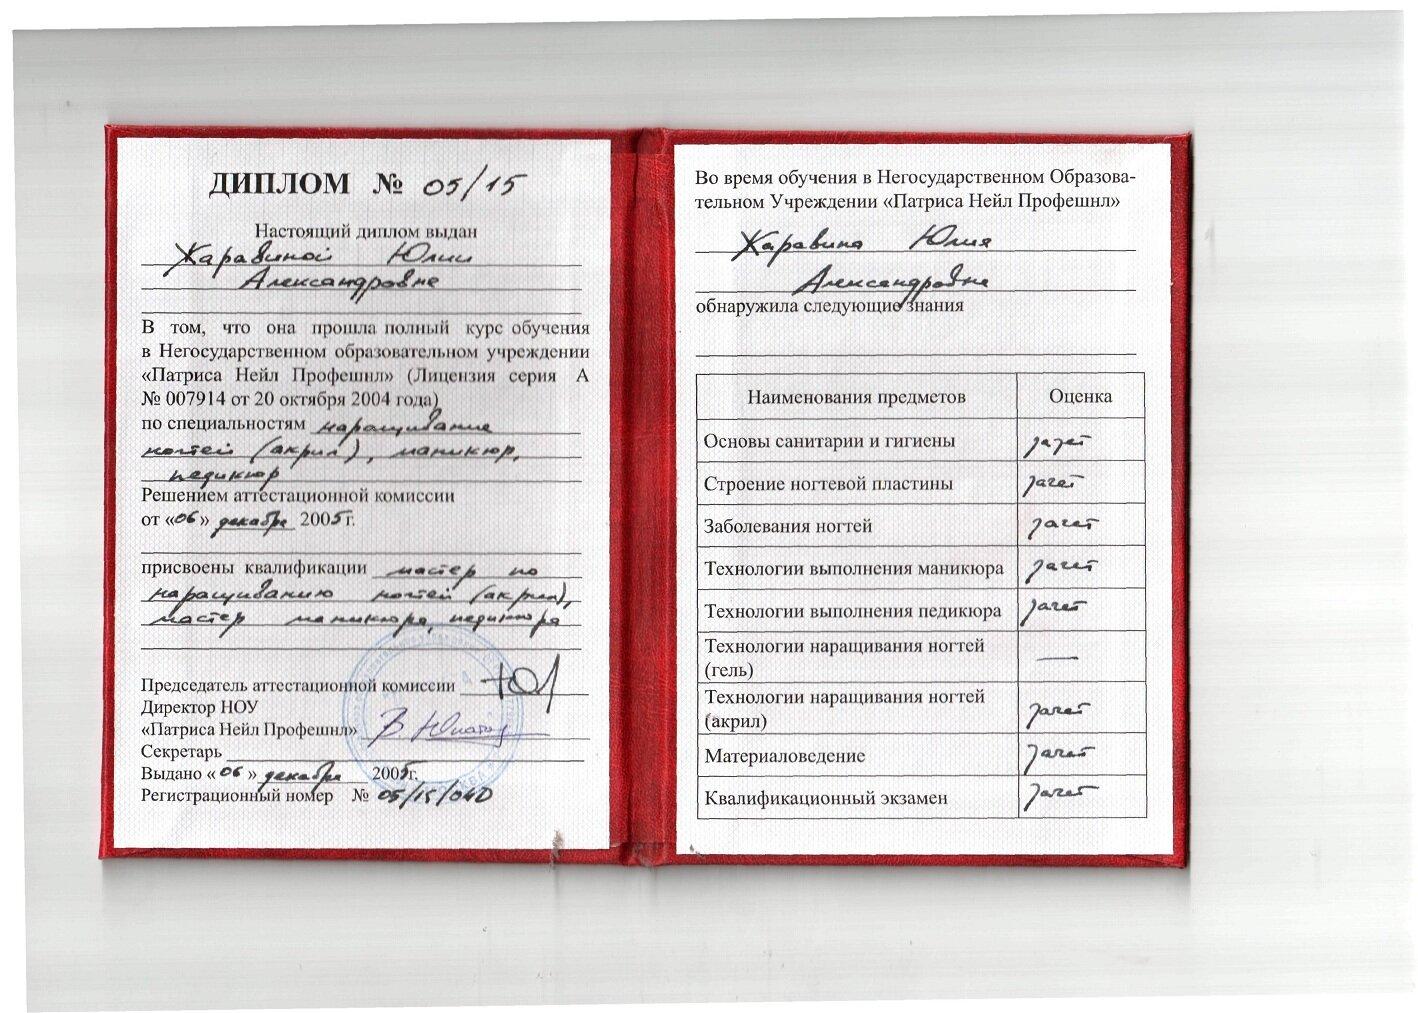 ДИПЛОМ № 05/15
Настоящий диплом выдан
Жаравиной Юлии
Александровне
В том, что она прошла полный курс обучения
в Негосударственном образовательном учреждении
«Патриса Нейл Профешнл» (Лицензия серия А
№ 007914 от 20 октября 2004 года)
по специальностям наращивание
ногтей (акрил), маникюр,
педикюр
Решением аттестационной комиссии
от «06» декабря 2005г.
присвоены квалификации мастер по
наращиванию ногтей (акрил),
мастер маникюра, педикюра
Председатель аттестационной комиссии
Директор НОУ
«Патриса Нейл Профешнл»
Секретарь
Выдано «06» декабря 2005г.
Регистрационный номер № 05/15/04D
Во время обучения в Негосударственном Образова-
тельном Учреждении «Патриса Нейл Профешнл»
Жаравина Юлия
Александровна
обнаружила следующие знания
Наименования предметов Оценка
Основы санитарии и гигиены зачет
Строение ногтевой пластины зачет
Заболевания ногтей зачет
Технологии выполнения маникюра зачет
Технологии выполнения педикюра зачет
Технологии наращивания ногтей
(гель) —
Технологии наращивания ногтей
(акрил) зачет
Материаловедение зачет
Квалификационный экзамен зачет